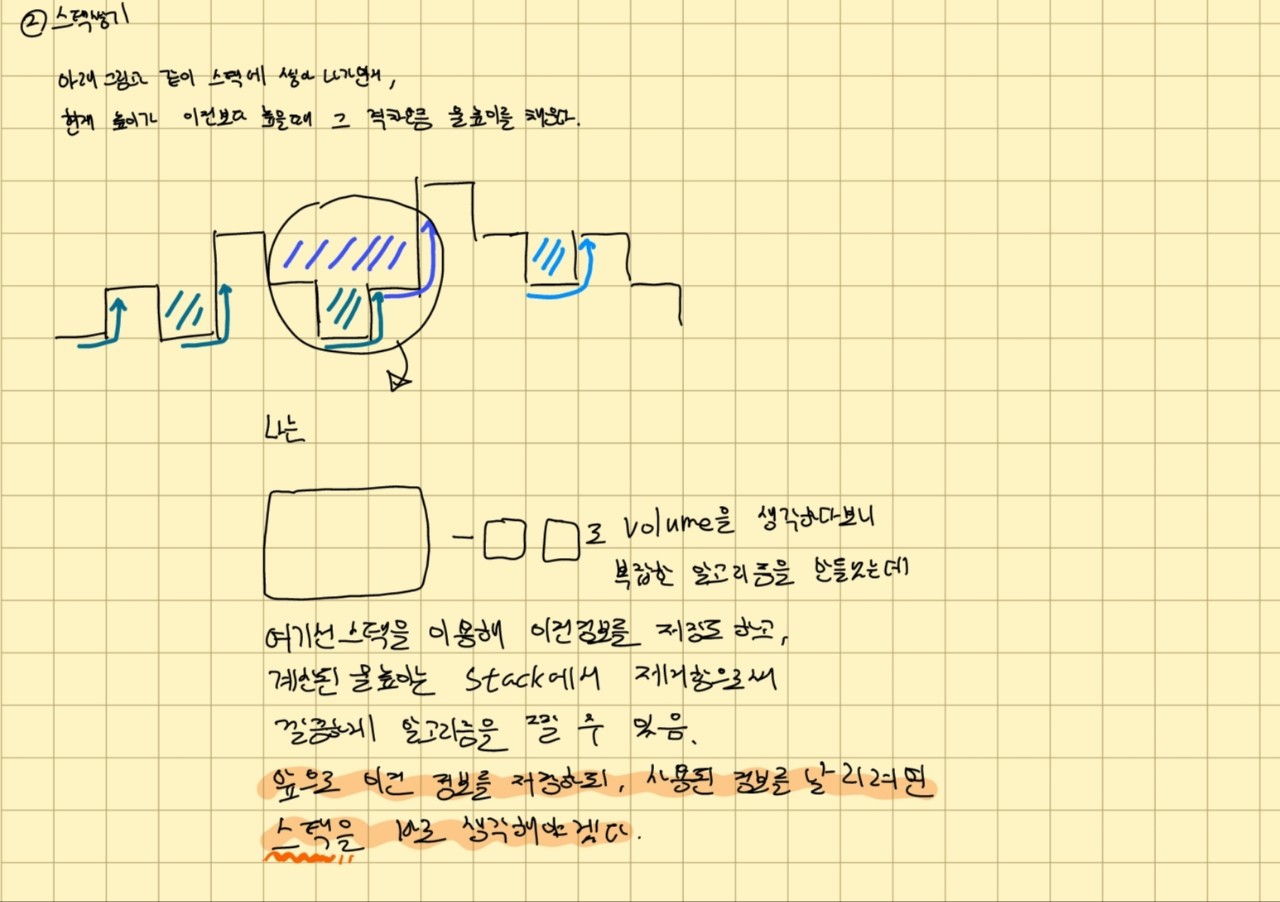 ② 스택쌓기
아래 그림과 같이 스택에 쌓아 나가면서,
현재 높이가 이전보다 높을때 그 격차만큼 물 높이를 채운다.
나는
- 로 Volume을 생각하다보니
복잡한 알고리즘을 만들었는데
여기선 스택을 이용해 이전정보를 저장도 하고,
계산된 물높이는 Stack에서 제거함으로써
깔끔하게 알고리즘을 짤 수 있음.
앞으로 이전 정보를 저장하되, 사용된 정보를 날리려면
스택을 바로 생각해야겠다.